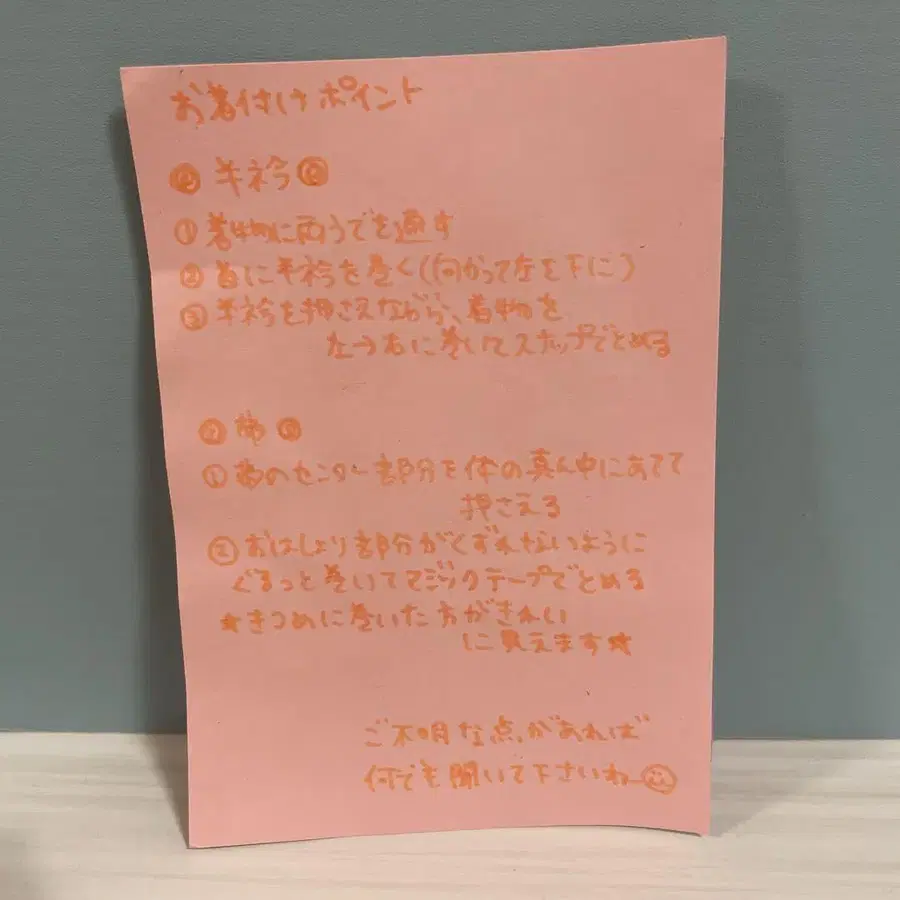 お着付けポイント
半衿
① 着物に両うでを通す
② 首に半衿を巻く(向かって左を下に)
③ 半衿を押さえながら、着物を
左→右に巻いてスナップでとめる
帯
① 帯のセンター部分を体の真ん中にあてて
押さえる
② おはしょり部分がくずれないように
ぐるっと巻いてマジックテープでとめる
★きつめに巻いた方がきれい
に見えます★
ご不明な点があれば
何でも聞いて下さいねー